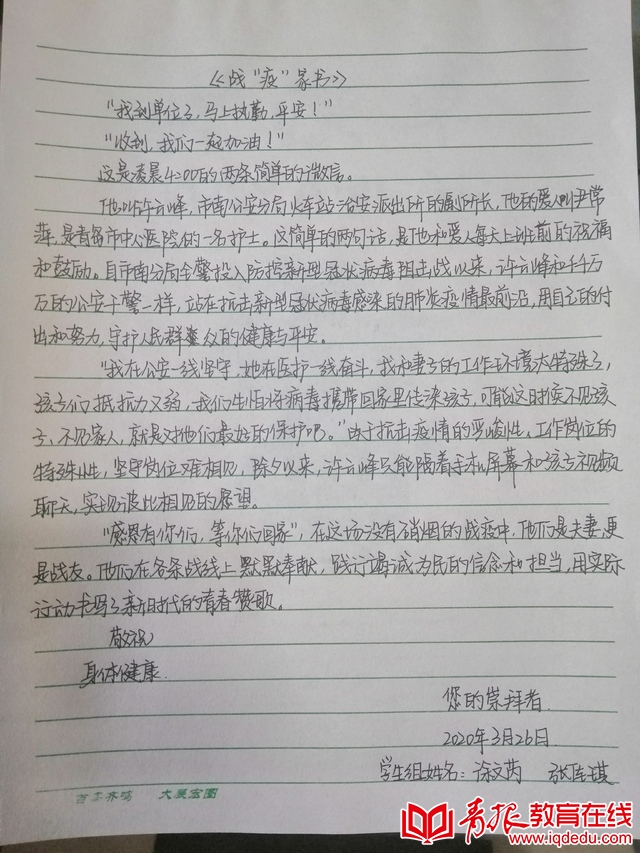 《战“疫”家书》
“我到单位了,马上执勤,平安!”
“收到,我们一起加油!”
这是凌晨4:00的两条简单的微信。
他叫许云峰,市南公安分局火车站治安派出所的副所长,他的爱人叫尹常
萍,是青岛市中心医院的一名护士。这简单的两句话,是他和爱人每天上班前的祝福
和鼓励。自市南分局全警投入防控新型冠状病毒阻击战以来,许云峰和千千万
万的公安干警一样,站在抗击新型冠状病毒感染的肺炎疫情最前沿,用自己的付
出和努力,守护人民群众的健康与平安。
“我在公安一线坚守,她在医护一线奋斗,我和妻子的工作环境太特殊了,
孩子们抵抗力又弱,我们生怕将病毒携带回家里传染孩子,可能这时候不见孩
子、不见家人,就是对他们最好的保护吧。”由于抗击疫情的严峻性,工作岗位的
特殊性,坚守岗位难相见,除夕以来,许云峰只能隔着手机屏幕和孩子视频
聊天,实现彼此相见的愿望。
“感恩有你们,等你们回家”,在这场没有硝烟的战疫中,他们是夫妻,更
是战友。他们在各条战线上默默奉献,践行竭诚为民的信念和担当,用实际
行动书写了新时代的青春赞歌。
敬祝
身体健康.
您的崇拜者
2020年3月26日
学生组姓名:徐文芮 张琪
百事齐鸣 大展宏图
青报教育在线
www.iqdedu.com